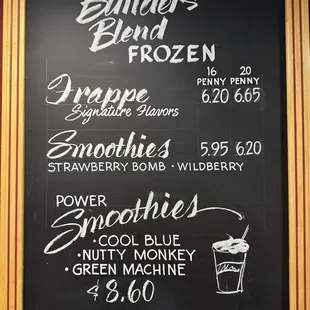 Builders
Blend
FROZEN
16 20
PENNY PENNY
Frappe 6.20 6.65
Signature Flavors
Smoothies 5.95 6.20
STRAWBERRY BOMB · WILDBERRY
POWER
Smoothies
· COOL BLUE
· NUTTY MONKEY
· GREEN MACHINE
$8.60